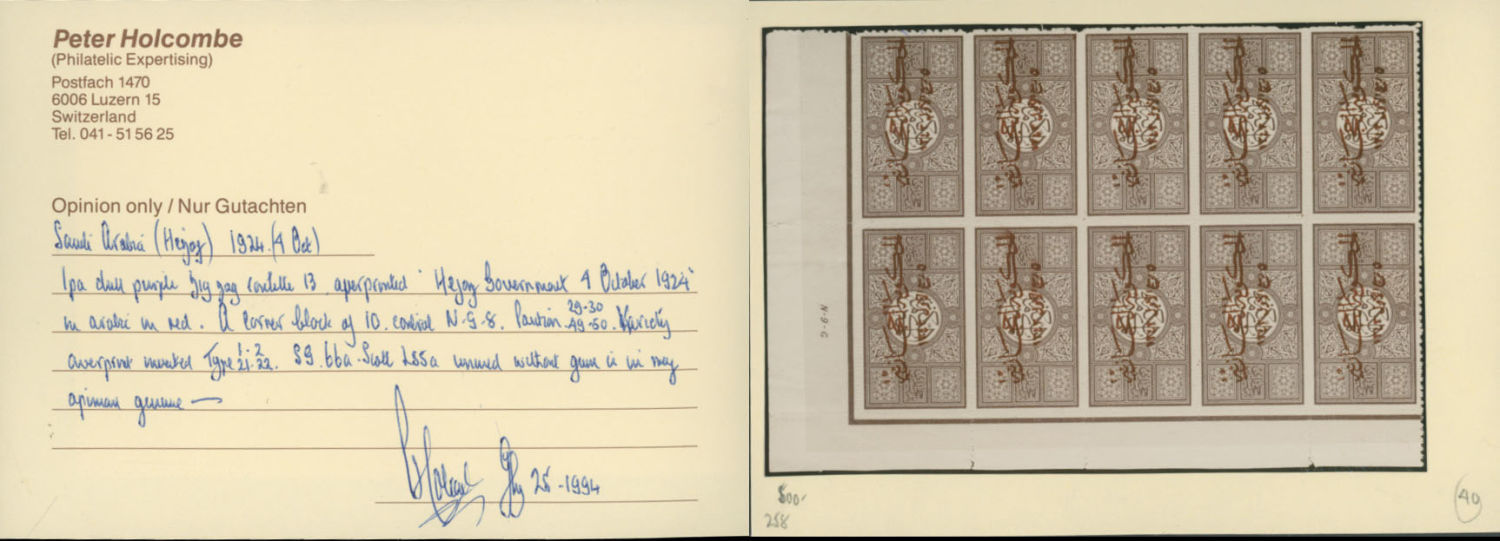 Peter Holcombe
(Philatelic Expertising)
Postfach 1470
6006 Luzern 15
Switzerland
Tel. 041 - 51 56 25
Opinion only / Nur Gutachten
Saudi Arabia (Hejaz) 1924. (4 Oct)
1pa dull purple zig zag roulette 13 overprinted "Hejaz Government 4 October 1924"
in arabic in red. A corner block of 10. control Position 29-30
49-50. Variety
overprint inverted Type 1-2
21-22. SG. 66a Scott L55a unused without gum is in my
opinion genuine —
25 - 1994
500-
258
40